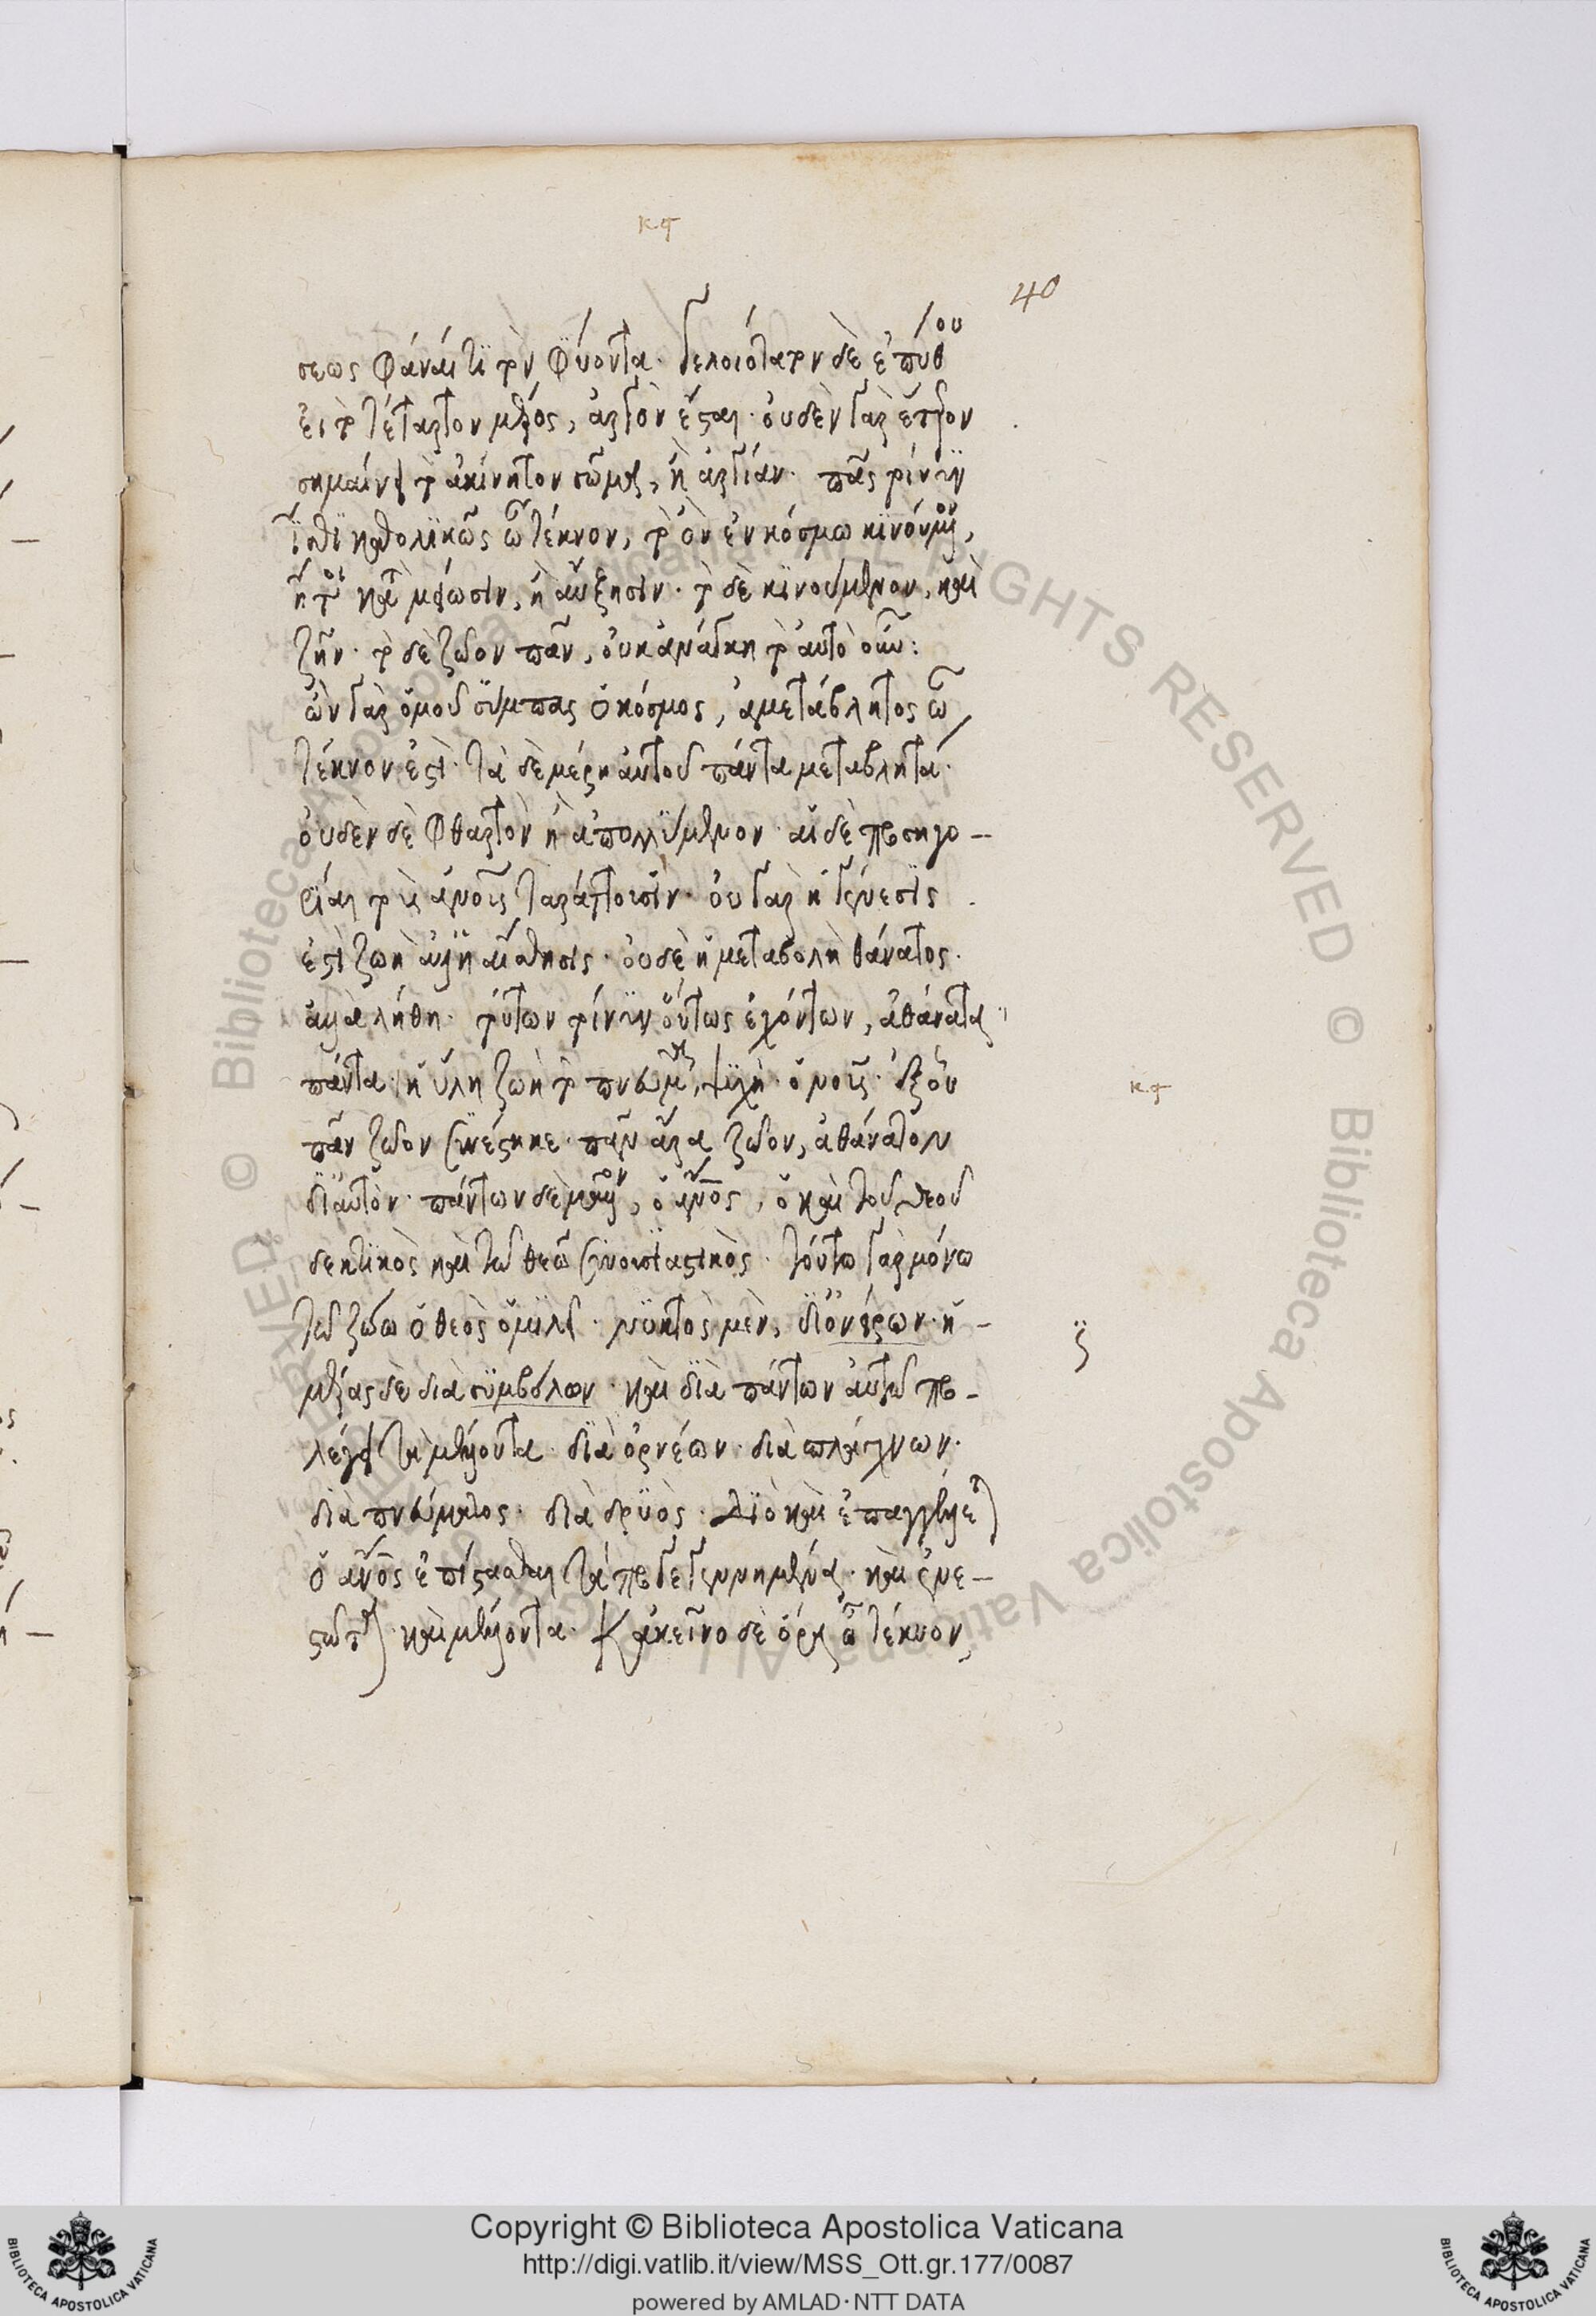 κϛ
40
σεως φάναι τι τὸν φύοντα. γελοιότατον δὲ ἐπύθου
εἰ τὸ τέταρτον μέρος, ἀργόν ἔσται. οὐδὲν γὰρ ἕτερον
σημαίνει τὸ ἀκίνητον σῶμα, ἢ ἀργίαν. πᾶν τοίνυν
ἴσθι καθολικῶς ὦ τέκνον, τὸ ὂν ἐν κόσμω κινούμενον,
ἤτοι κατὰ μείωσιν, ἢ αὔξησιν. τὸ δὲ κινούμενον, καὶ
ζῆν. τὸ δὲ ζῶον πᾶν, οὐκ ἀνάγκη τὸ αὐτὸ
ὢν γὰρ ὁμοῦ σύμπας ὁ κόσμος, ἀμετάβλητος ὦ
τέκνον ἐστὶ. τὰ δὲ μέρη αὐτοῦ πάντα μεταβλητά.
οὐδὲν δὲ φθαρτὸν ἢ ἀπολλύμενον. αἱ δὲ προσηγο-
ρίαι τοὺς ἀνους ταράττουσιν. οὐ γὰρ ἡ γένεσίς
ἐστὶ ζωὴ ἀλλ' ἡ αἴσθησις. οὐδὲ ἡ μεταβολὴ θάνατος.
ἀλλὰ λήθη. τούτων τοίνυν οὕτως ἐχόντων, ἀθάνατα
πάντα. ἡ ὕλη ζωὴ τὸ πνεῦμα, ψυχὴ. ὁ νοῦς. ἐξ οὗ
κϛ
πᾶν ζῶον συνέστηκε. πᾶν ἄρα ζῶον, ἀθάνατον
δι' αὐτὸν. πάντων δὲ μᾶλλον, ὁ ἄνος, ὁ καὶ τοῦ θεοῦ
δεκτικὸς καὶ τῶ θεῶ συνουσιαστικὸς. τούτω γὰρ μόνω
τῶ ζώω ὁ θεὸς ὁμιλεῖ. νυκτὸς μὲν, δι' ὀνείρων. ἡ-
μέρας δὲ διὰ συμβόλων. καὶ διὰ πάντων αὐτῶ προ-
λέγει τὰ μέλλοντα. διὰ ὀρνέων. διὰ σπλάγχνων.
διὰ πνεύματος. διὰ δρυὸς. διὸ καὶ ἐπαγγέλλεται
ὁ ἄνος ἐπίστασθαι τὰ προγεγενημένα. καὶ ἐνε-
στῶτα. καὶ μέλλοντα. κἀκεῖνο δὲ ὅρα ὦ τέκνον,
Copyright © Biblioteca Apostolica Vaticana
http://digi.vatlib.it/view/MSS_Ott.gr.177/0087
powered by AMLAD·NTT DATA